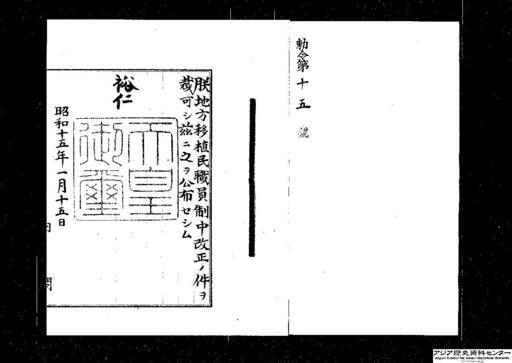 勅令第十五號
朕地方移植民職員制中改正ノ件ヲ
裁可シ茲ニ之ヲ公布セシム
裕仁
天皇御璽
昭和十五年一月十五日
アジア歴史資料センター
Japan Center for Asian Historical Records